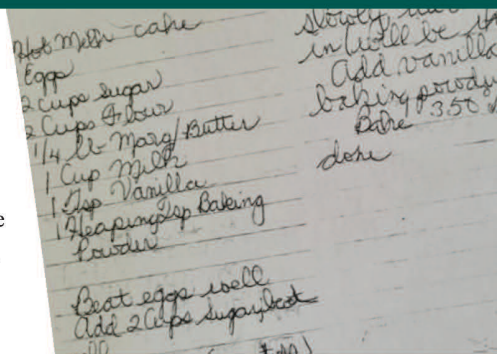 Hot Milk cake
Eggs
2 Cups Sugar
2 Cups Flour
1/4 lb Marg/Butter
1 Cup Milk
1 Tsp Vanilla
1 Heaping Tsp Baking
Powder
Beat eggs well
Add 2 Cups Sugar, beat
slowly
in will be
Add vanilla
baking powder
Bake 350
done